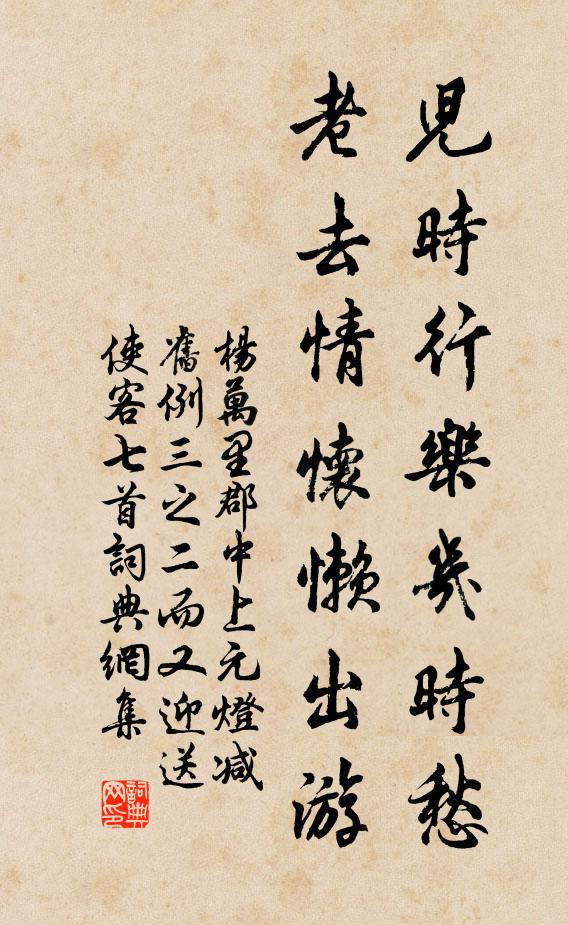 兒時行樂幾時愁
老去情懷懶出游
楊萬里郡中上元燈減
舊例三之二而又迎送
使客七首詞典網集
詞典網印